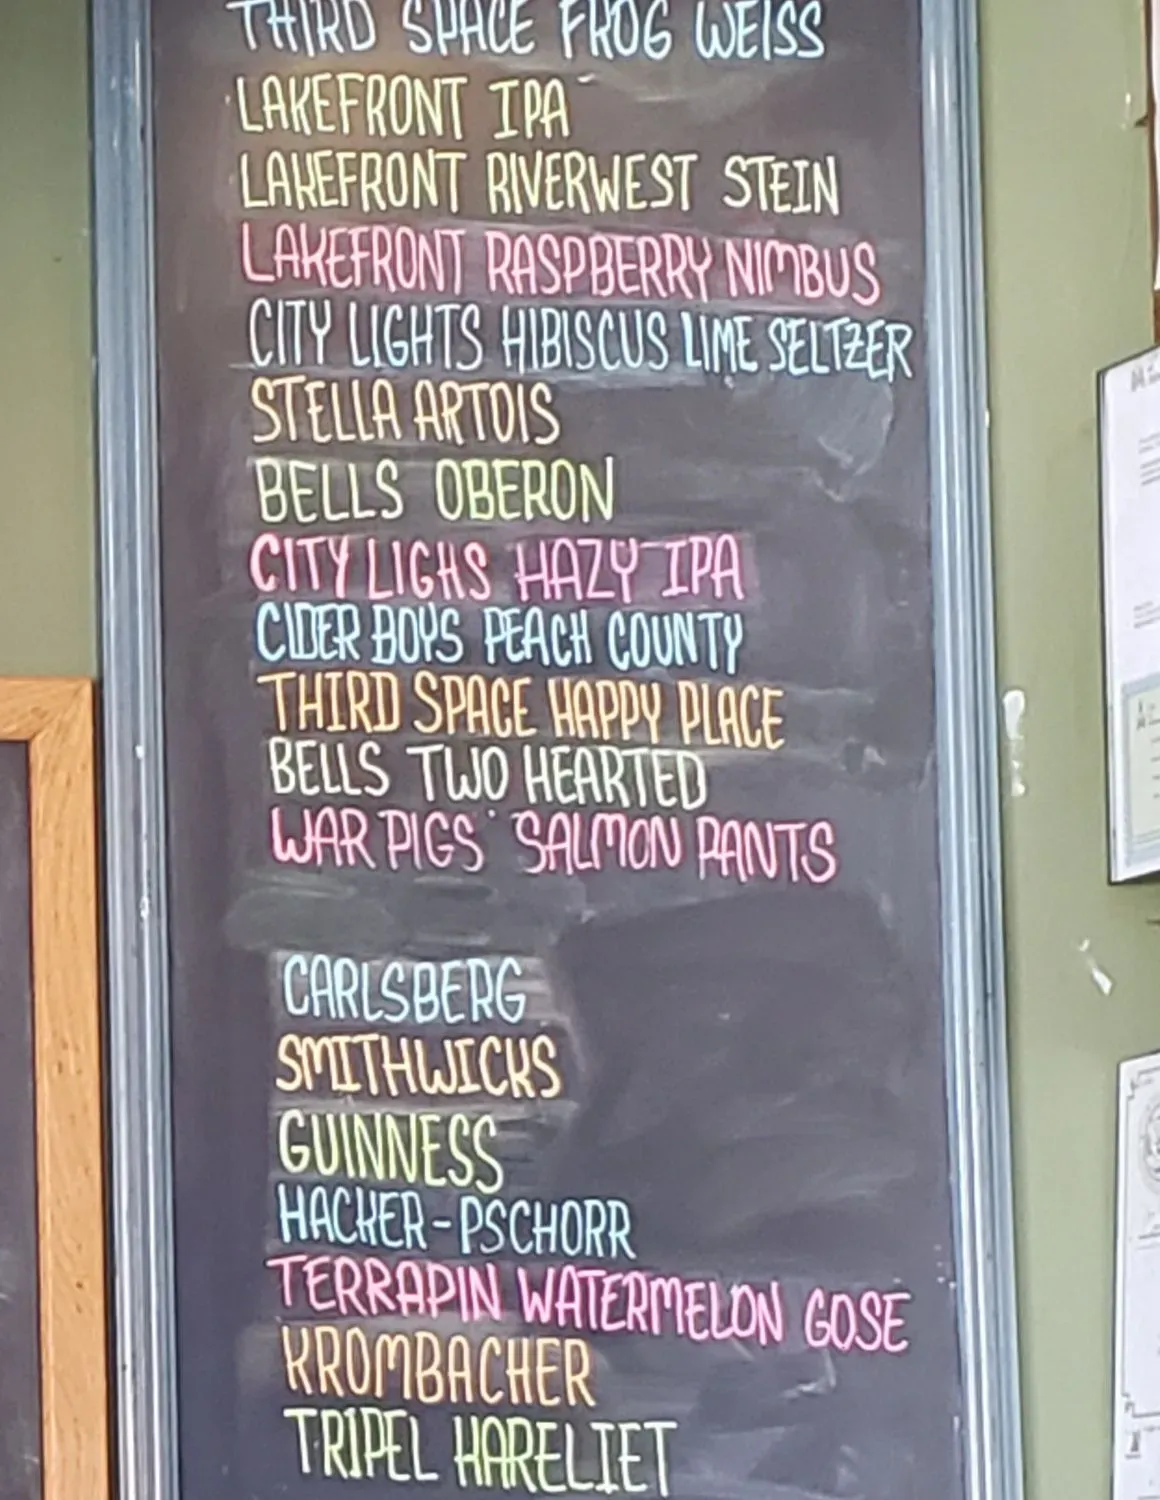 THIRD SPACE FROG WEISS
LAKEFRONT IPA
LAKEFRONT RIVERWEST STEIN
LAKEFRONT RASPBERRY NIMBUS
CITY LIGHTS HIBISCUS LIME SELTZER
STELLA ARTOIS
BELLS OBERON
CITY LIGHS HAZY IPA
CIDER BOYS PEACH COUNTY
THIRD SPACE HAPPY PLACE
BELLS TWO HEARTED
WAR PIGS SALMON PANTS
CARLSBERG
SMITHWICKS
GUINNESS
HACKER-PSCHORR
TERRAPIN WATERMELON GOSE
KROMBACHER
TRIPEL KARELIET